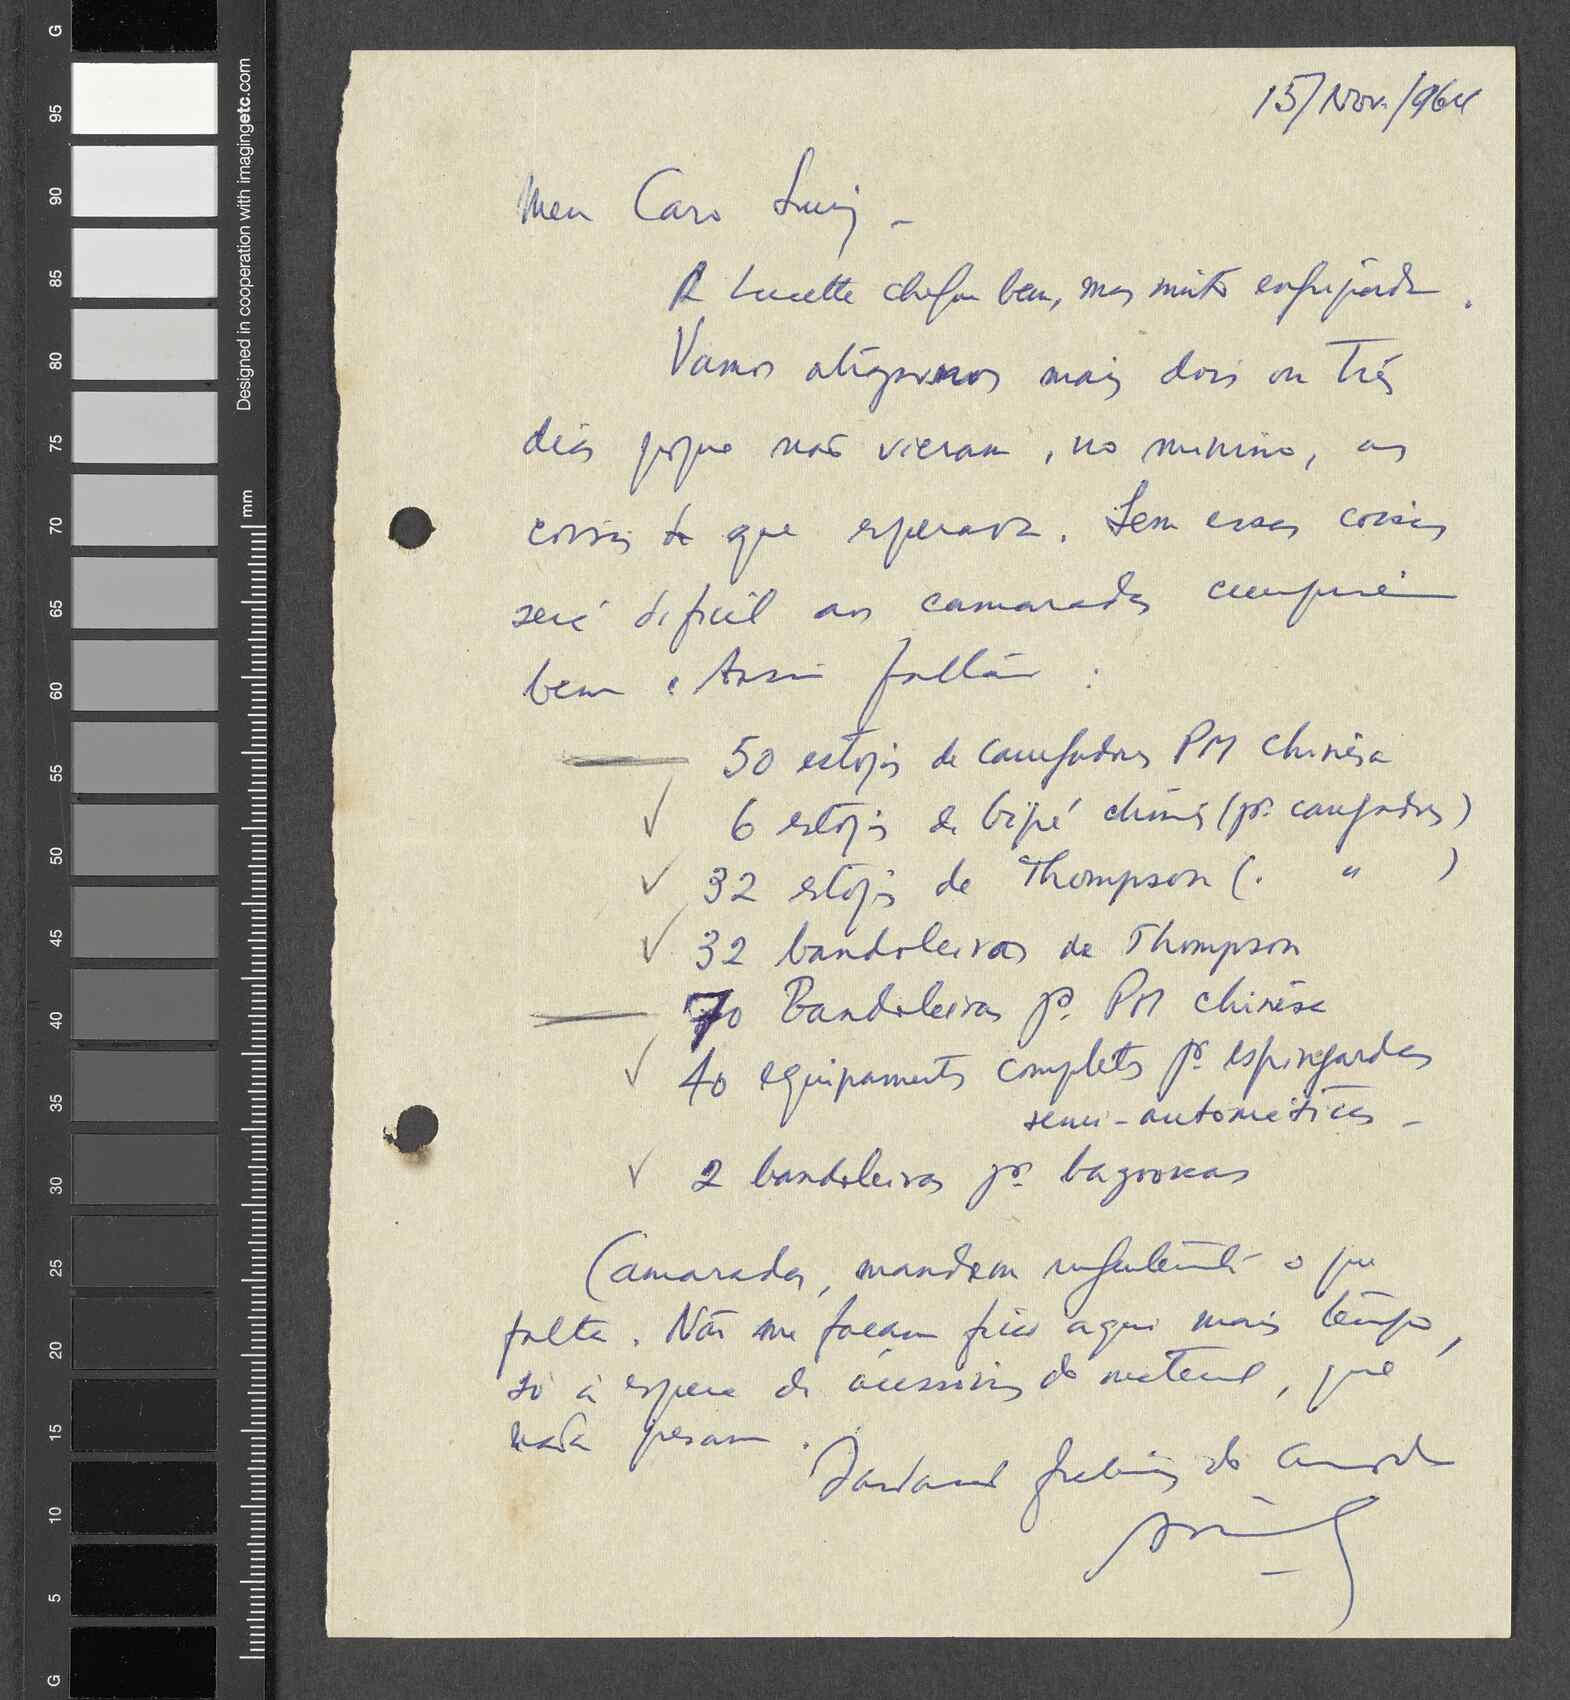 15/Nov./964
Meu Caro Luiz –
A Lucette chegou bem, mas muito engripada.
Vamos atrazarmos mais dois ou três
dias porque não vieram, no minimo, as
coisas de que esperava. Sem essas coisas
será dificil aos camaradas cumprirem
bem. Assim faltam:
50 estojos de carregadores PM chinêsa
6 estojos de bipé chinês (pª carregadores)
32 estojos de Thompson (. " )
32 bandoleiras de Thompson
70 Bandoleiras pª PM chinêsa
40 equipamentos completos pª espingardas
semi-automáticas –
2 bandoleiras pª bazookas
Camaradas, mandem urgentemente o que
falta. Não me façam ficar aqui mais tempo,
só à espera de acessórios do material, que
nada pesam.
Saudações do Camarada
Designed in cooperation with imagingetc.com
mm
G
95
90
85
80
75
70
65
60
55
50
45
40
35
30
25
20
15
10
5
G